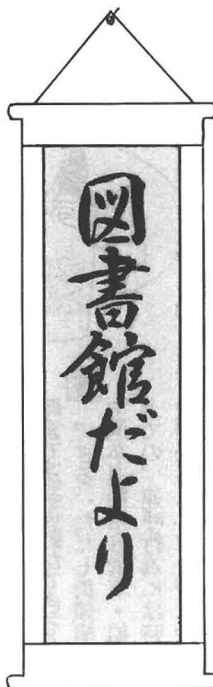 図書館だより